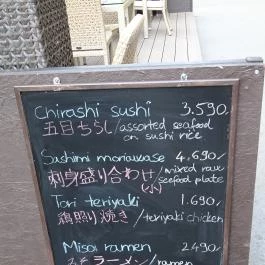 Chirashi sushi 3.590,-
五目ちらし/assorted seafood
on sushi rice
Sashimi moriawase 4.690,-
刺身盛り合わせ/mixed raw
(小) seafood plate
Tori teriyaki 1.690,-
鶏照り焼き/teriyaki chicken
Miso ramen 2490,-
みそラーメン/ramen